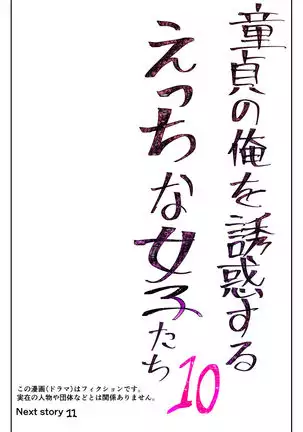 童貞の俺を誘惑する
えっちな女子たち
10
この漫画(ドラマ)はフィクションです。
実在の人物や団体などとは関係ありません。
Next story 11